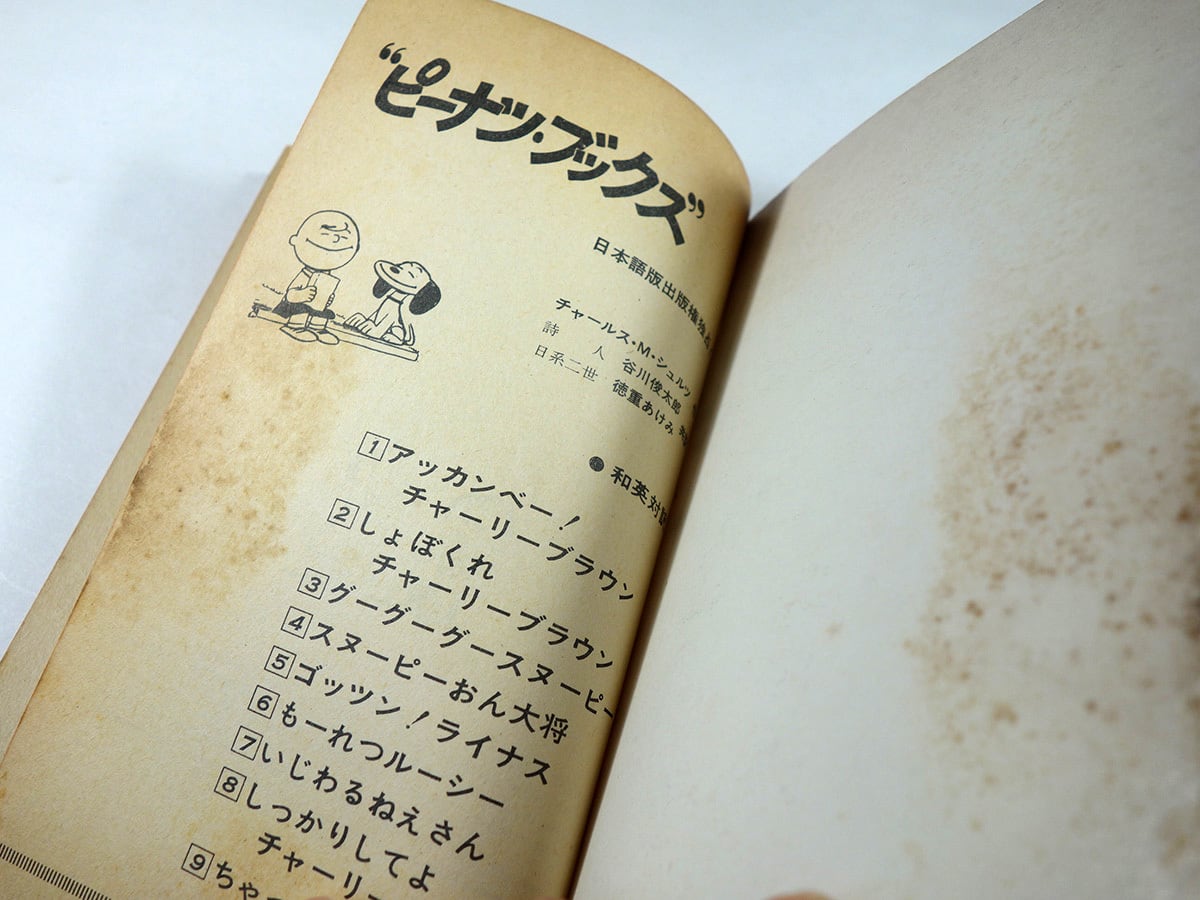 “ピーナツ・ブックス”
日本語版出版権独占
チャールス・M・シュルツ
詩 人 谷川俊太郎
日系二世 徳重あけみ
●和英対訳
1 アッカンベー!
チャーリーブラウン
2 しょぼくれ
チャーリーブラウン
3 グーグーグースヌーピー
4 スヌーピーおん大将
5 ゴッツン!ライナス
6 もーれつルーシー
7 いじわるねえさん
8 しっかりしてよ
チャーリー
9 ちゃっ